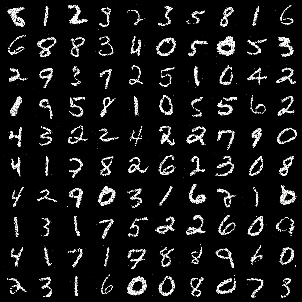 8 1 2 3 2 3 5 8 1 6
6 8 8 3 4 0 5 0 5 3
2 9 3 7 2 5 1 0 4 2
1 9 5 8 1 0 5 5 6 2
4 3 2 2 4 8 2 7 9 0
4 1 7 8 2 6 2 3 0 8
4 2 9 0 3 1 6 7 1 0
1 3 1 7 5 2 2 6 0 9
4 1 7 1 9 8 8 9 6 0
2 3 1 6 0 0 8 0 7 3